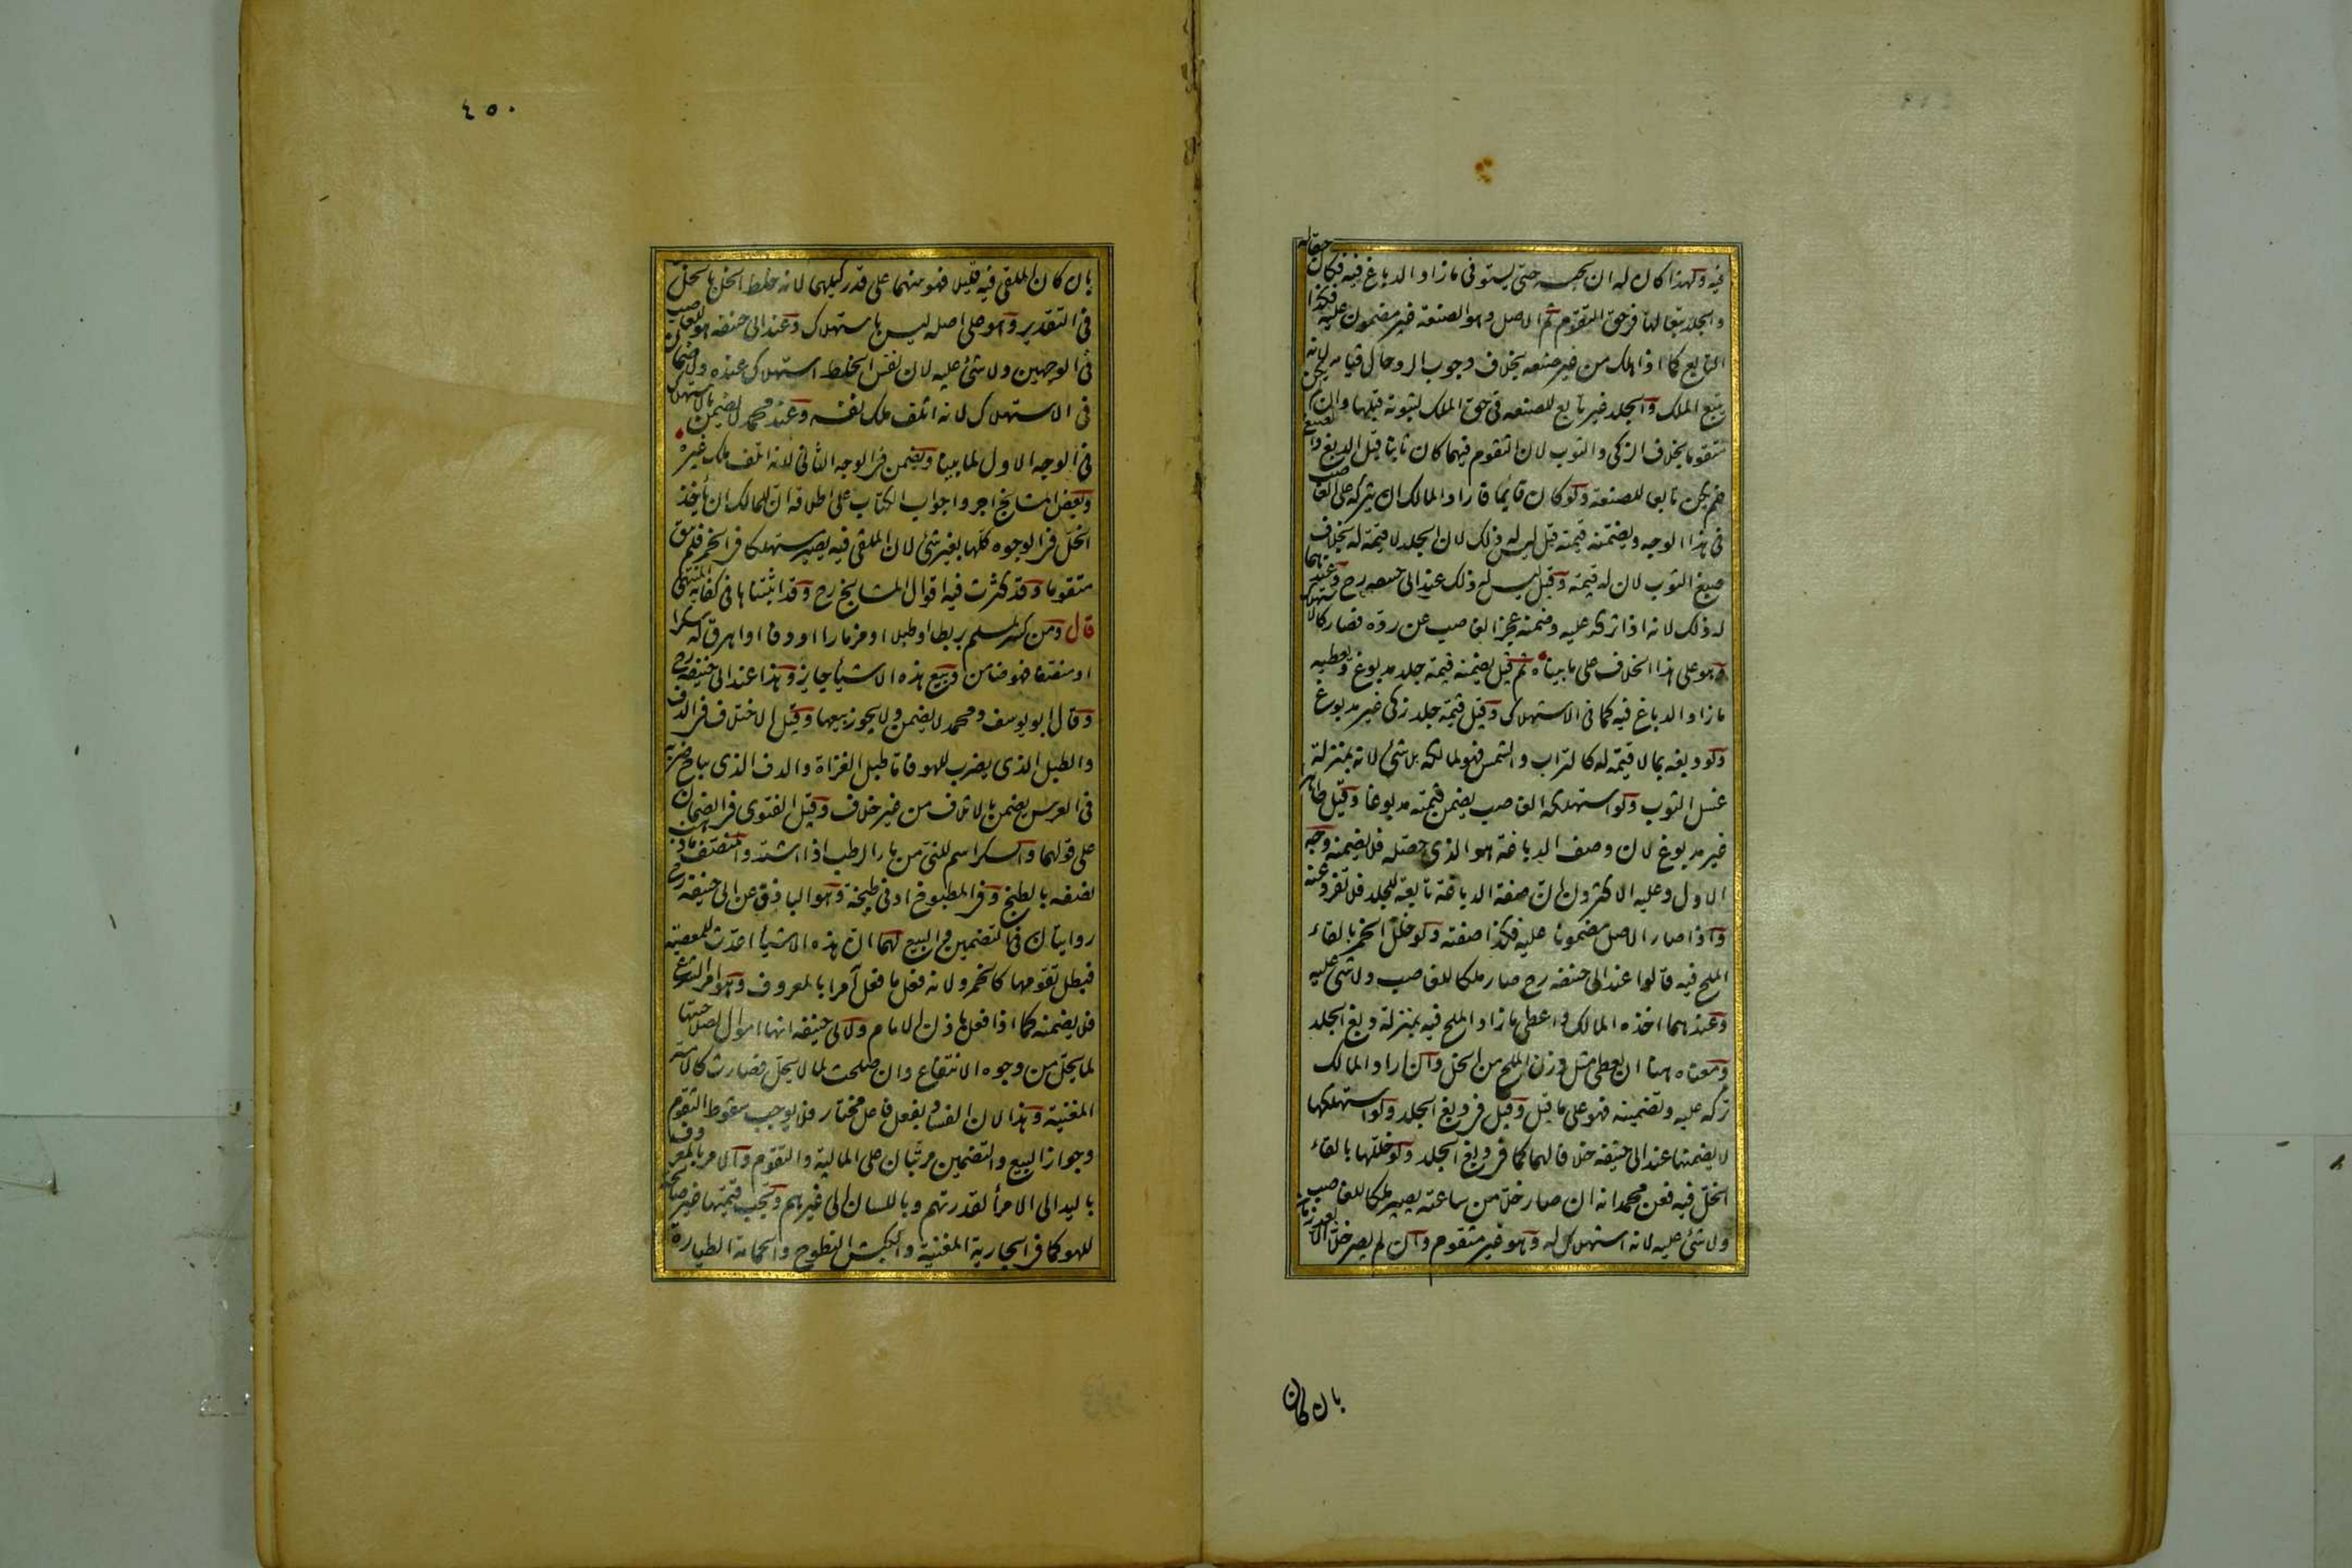 فيه ولهذا كان له ان يحبسه حتى يستوفى ما زاد الدباغ فيه فكان حقا له
والجلد تبعا لها فى حق التقوم ثم الاصل وهو الصنعة غير مضمون عليه فكذا
التابع كما اذا هلك من غير صنعه بخلاف وجوب الرد حال قيامه لانه
يتبع الملك والجلد غير تابع للصنعه فى حق الملك لثبوته قبلها وان لم يكن
متقوما بخلاف الزكى والثوب لان التقوم فيهما كان ثابتا قبل الدبغ والصبغ
فلم يكن تابعا للصنعة ولو كان قايما فاراد المالك ان يتركه على الغاصب
فى هذا الوجه ويضمنه قيمته قيل ليس له ذلك لان الجلد لا قيمة له بخلاف
صبغ الثوب لان له قيمة وقيل ليس له ذلك عند ابى حنيفه رح وعندهما
له ذلك لانه اذا تركه عليه وضمنه عجز الغاصب عن رده فصار كالاستهلاك
وهو على هذا الخلاف على ما بيناه ثم قيل يضمنه قيمة جلد مدبوغ ويعطيه
ما زاد الدباغ فيه كما فى الاستهلاك وقيل قيمة جلد زكى غير مدبوغ
ولو دبغه بما لا قيمة له كالتراب والشمس فهو لمالكه بلا شئ لانه بمنزلة
غسل الثوب ولو استهلكه الغاصب يضمن قيمته مدبوغا وقيل طاهرا
غير مدبوغ لان وصف الدباغة هو الذى حصله فلا يضمنه وجه
الاول وعليه الاكثرون ان صفة الدباغة تابعة للجلد فلا تفرد عنه
واذا صار الاصل مضمونا عليه فكذا صفته ولو خلل الخمر بالقاء
الملح فيه قالوا عند ابى حنيفه رح صار ملكا للغاصب ولا شئ عليه
وعندهما اخذه المالك واعطى ما زاد الملح فيه بمنزلة دبغ الجلد
ومعناه هنا ان يعطى مثل وزن الملح من الخل وان اراد المالك
تركه عليه وتضمينه فهو على ما قيل وقيل فى دبغ الجلد ولو استهلكها
لا يضمنها عند ابى حنيفه خلافا لهما كما فى دبغ الجلد ولو خللها بالقاء
الخل فيه فعن محمد انه ان صار خلا من ساعته يصير ملكا للغاصب
ولا شئ عليه لانه استهلاك له وهو غير متقوم وان لم يصر خلا الا بعد زمان
بان كان
٤٥٠
بان كان الملقى فيه قليلا فهو بينهما على قدر كيلهما لانه خلط الخل بالخل
فى التقدير وهو على اصله ليس باستهلاك وعند ابى حنيفه هو للغاصب
فى الوجهين ولا شئ عليه لان نفس الخلط استهلاك عنده ولا ضمان
فى الاستهلاك لانه اتلف ملك نفسه وعند محمد لا يضمن بالاستهلاك
فى الوجه الاول لما بينا ويضمن فى الوجه الثانى لانه اتلف ملك غيره
وبعض المشايخ اجروا جواب الكتاب على اطلاقه ان للمالك ان ياخذ
الخل فى الوجوه كلها بغير شئ لان الملقى فيه يصير مستهلكا فى الخمر فلم يبق
متقوما وقد كثرت فيه اقوال المشايخ رح وقد اثبتناها فى كفاية المنتهى
قال ومن كسر لمسلم بربطا او طبلا او مزمارا او دفا او اهرق له سكرا
او منصفا فهو ضامن وبيع هذه الاشياء جايز وهذا عند ابى حنيفه رح
وقال ابو يوسف ومحمد لا يضمن ولا يجوز بيعها وقيل الاختلاف فى الدف
والطبل الذى يضرب للهو فاما طبل الغزاة والدف الذى يباح ضربه
فى العرس يضمن بالاتلاف من غير خلاف وقيل الفتوى فى الضمان
على قولهما والسكر اسم للنئ من ماء الرطب اذا اشتد والمنصف ما ذهب
نصفه بالطبخ وفى المطبوخ ادنى طبخة وهو الباذق عن ابى حنيفه رح
روايتان فى التضمين والبيع لهما ان هذه الاشياء اعدت للمعصية
فبطل تقومها كالخمر ولانه فعل ما فعل آمرا بالمعروف وهو امر الشرع
فلا يضمنه كما اذا فعل باذن الامام ولابى حنيفه انها اموال لصلاحيتها
لما يحل من وجوه الانتفاع وان صلحت لما لا يحل فصارت كالامة
المغنية وهذا لان الفساد بفعل فاعل مختار فلا يوجب سقوط التقوم
وجواز البيع والتضمين مرتبان على المالية والتقوم والامر بالمعروف
باليد الى الامراء لقدرتهم وباللسان الى غيرهم وتجب قيمتها غير صالحة
للهو كما فى الجارية المغنية والكبش النطوح والحمامة الطيارة